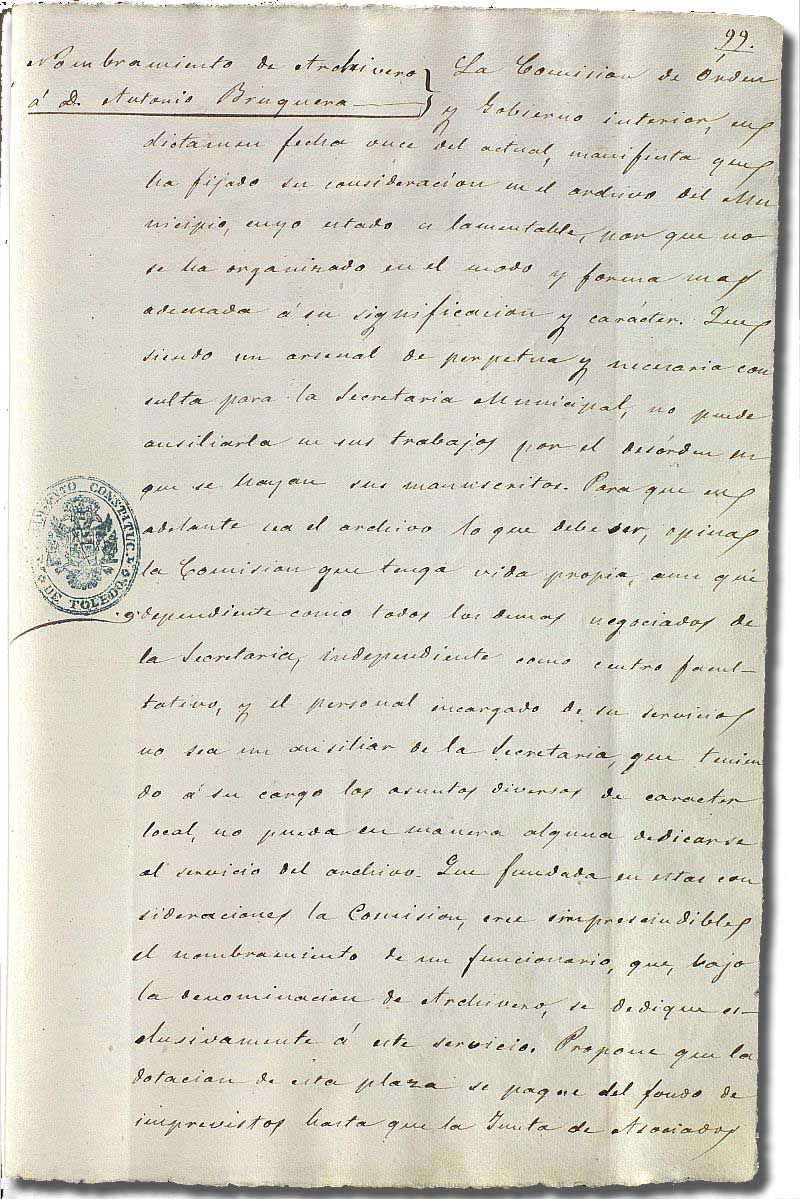 99.
Nombramiento de Archivero
á D. Antonio Bruguera
La Comision de Orden
y Gobierno interior, en
dictamen fecha once del actual, manifiesta que
ha fijado su consideración en el archivo del Mu
nicipio, cuyo estado es lamentable, por que no
se ha organizado en el modo y forma mas
adecuada á su significacion y carácter. Que
siendo un arsenal de perpetua y necesaria con
sulta para la Secretaria Municipal, no puede
ausiliarla en sus trabajos por el desórden en
que se hayan sus manuscritos. Para que en
adelante sea el archivo lo que debe ser, opina
la Comision que tenga vida propia, aun que
dependiente como todos los demas negociados de
la Secretaria, independiente como centro facul-
tativo, y el personal encargado de su servicio
no sea un ausiliar de la Secretaria, que tenien
do á su cargo los asuntos diversos de caracter
local, no pueda en manera alguna dedicarse
al servicio del archivo. Que fundada en estas con
sideraciones la Comision, cree imprescindible
el nombramiento de un funcionario, que, bajo
la denominacion de Archivero, se dedique es-
clusivamente á este servicio. Propone que la
dotacion de esta plaza se pague del fondo de
imprevistos hasta que la Junta de Asociados
AYUNTAMIENTO CONSTITUC.L
DE TOLEDO